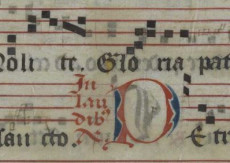 olite. Gloria pat
In
lau
dib⁹
sancto. P Etri